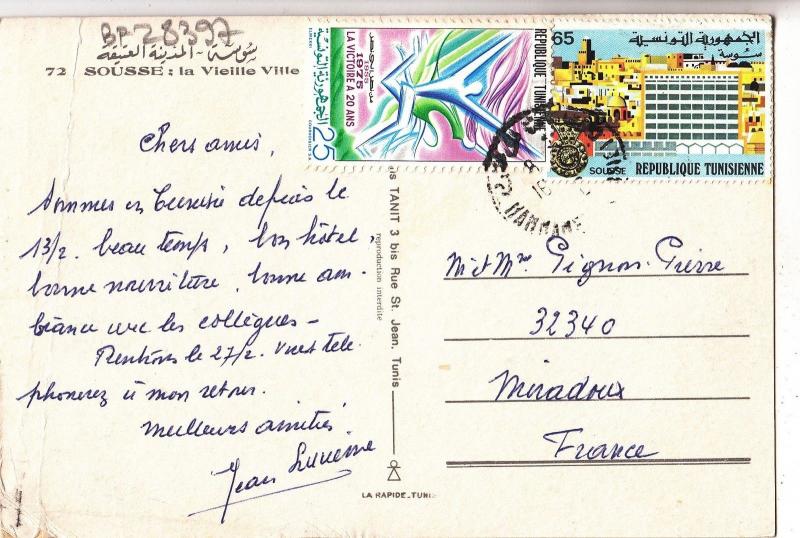 BPZ8397
سوسة - المدينة العتيقة
72 SOUSSE : la Vieille Ville
Chers amis,
Sommes en Tunisie depuis le
13/2. beau temps, bon hôtel,
bonne nourriture, bonne am-
biance avec les collègues -
Rentrons le 27/2. vous télé
phonerez à mon retour.
Meilleurs amitiés
Jean
TANIT 3 bis Rue St. Jean, Tunis
reproduction interdite
LA RAPIDE-TUNIS
1955
1975
LA VICTOIRE A 20 ANS
الجمهورية التونسية
25
REPUBLIQUE TUNISIENNE
65
الجمهورية التونسية
سوسة
SOUSSE
REPUBLIQUE TUNISIENNE
HAMMAM
M et Mme Pignon Pierre
32340
Miradoux
France